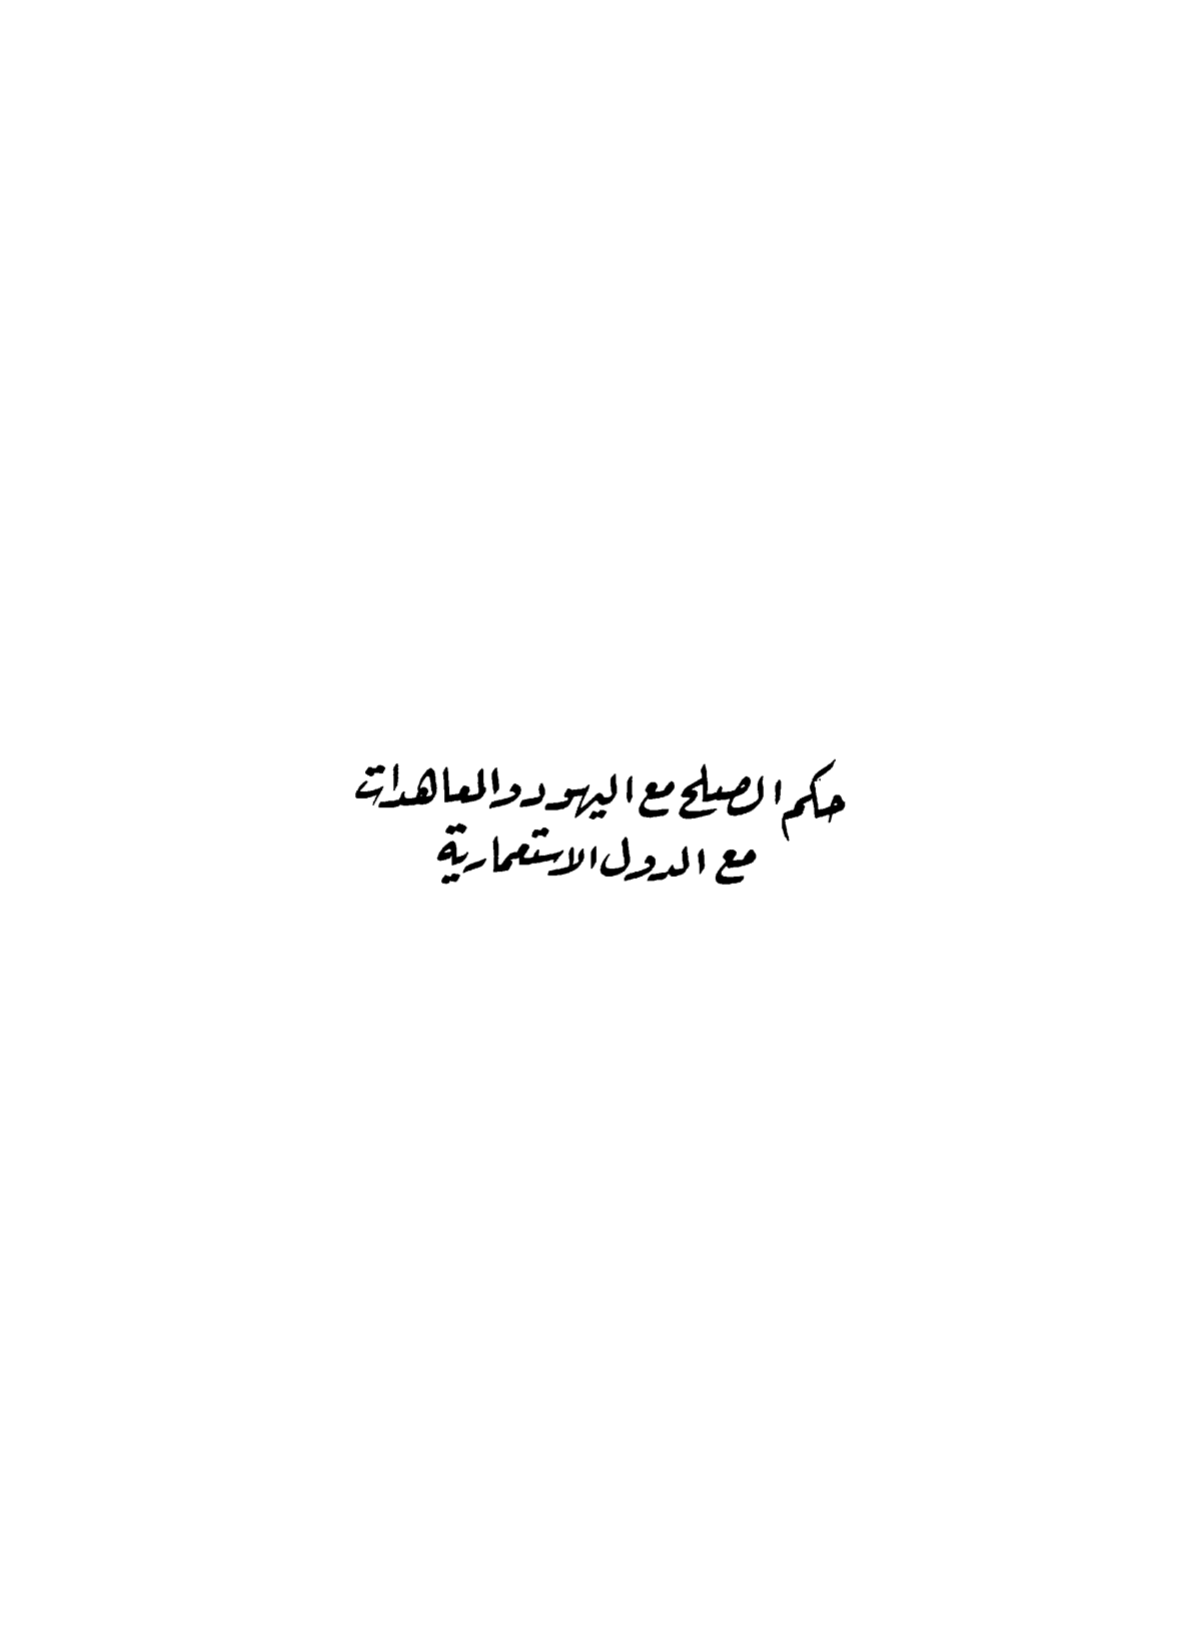 حكم الصلح مع اليهود والمعاهدات
مع الدول الاستعمارية